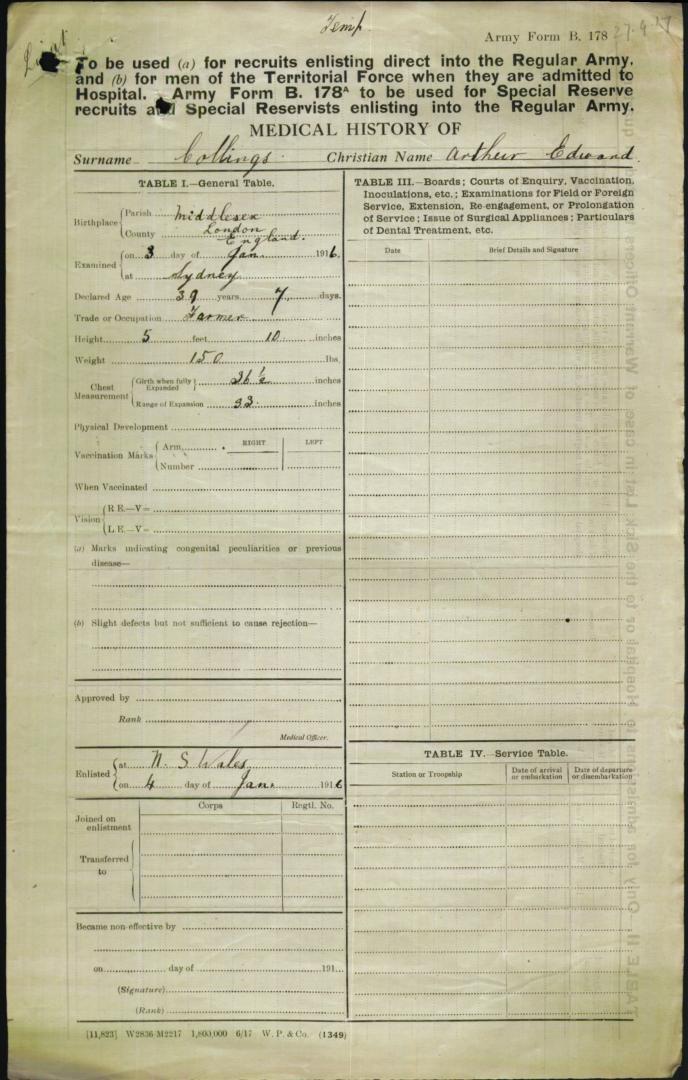 Temp.
Army Form B. 178
27.9.17
Lieut
To be used (a) for recruits enlisting direct into the Regular Army,
and (b) for men of the Territorial Force when they are admitted to
Hospital. Army Form B. 178A to be used for Special Reserve
recruits and Special Reservists enlisting into the Regular Army.
MEDICAL HISTORY OF
Surname Collings. Christian Name Arthur Edward
TABLE I.—General Table.
Birthplace { Parish Middlesex
County London
England.
Examined { on 3 day of Jan. 1916.
at Sydney
Declared Age 39 years 7 days.
Trade or Occupation Farmer
Height 5 feet 10 inches
Weight 150 lbs.
Chest Measurement { Girth when fully Expanded } 36 ½ inches
Range of Expansion 33. inches
Physical Development
Vaccination Marks { Arm RIGHT LEFT
Number
When Vaccinated
Vision { R E.—V=
L E.—V=
(a) Marks indicating congenital peculiarities or previous
disease—
(b) Slight defects but not sufficient to cause rejection—
Approved by
Rank
Medical Officer.
Enlisted { at N. S Wales
on 4 day of Jan. 1916
Corps Regtl. No.
Joined on
enlistment
Transferred
to
Became non-effective by
on day of 191
(Signature)
(Rank)
TABLE III.—Boards; Courts of Enquiry, Vaccination,
Inoculations, etc.; Examinations for Field or Foreign
Service, Extension, Re-engagement, or Prolongation
of Service; Issue of Surgical Appliances; Particulars
of Dental Treatment, etc.
Date Brief Details and Signature
TABLE IV.—Service Table.
Station or Troopship Date of arrival or embarkation Date of departure or disembarkation
[11,823] W2836-M2217 1,800,000 6/17 W. P. & Co. (1349)